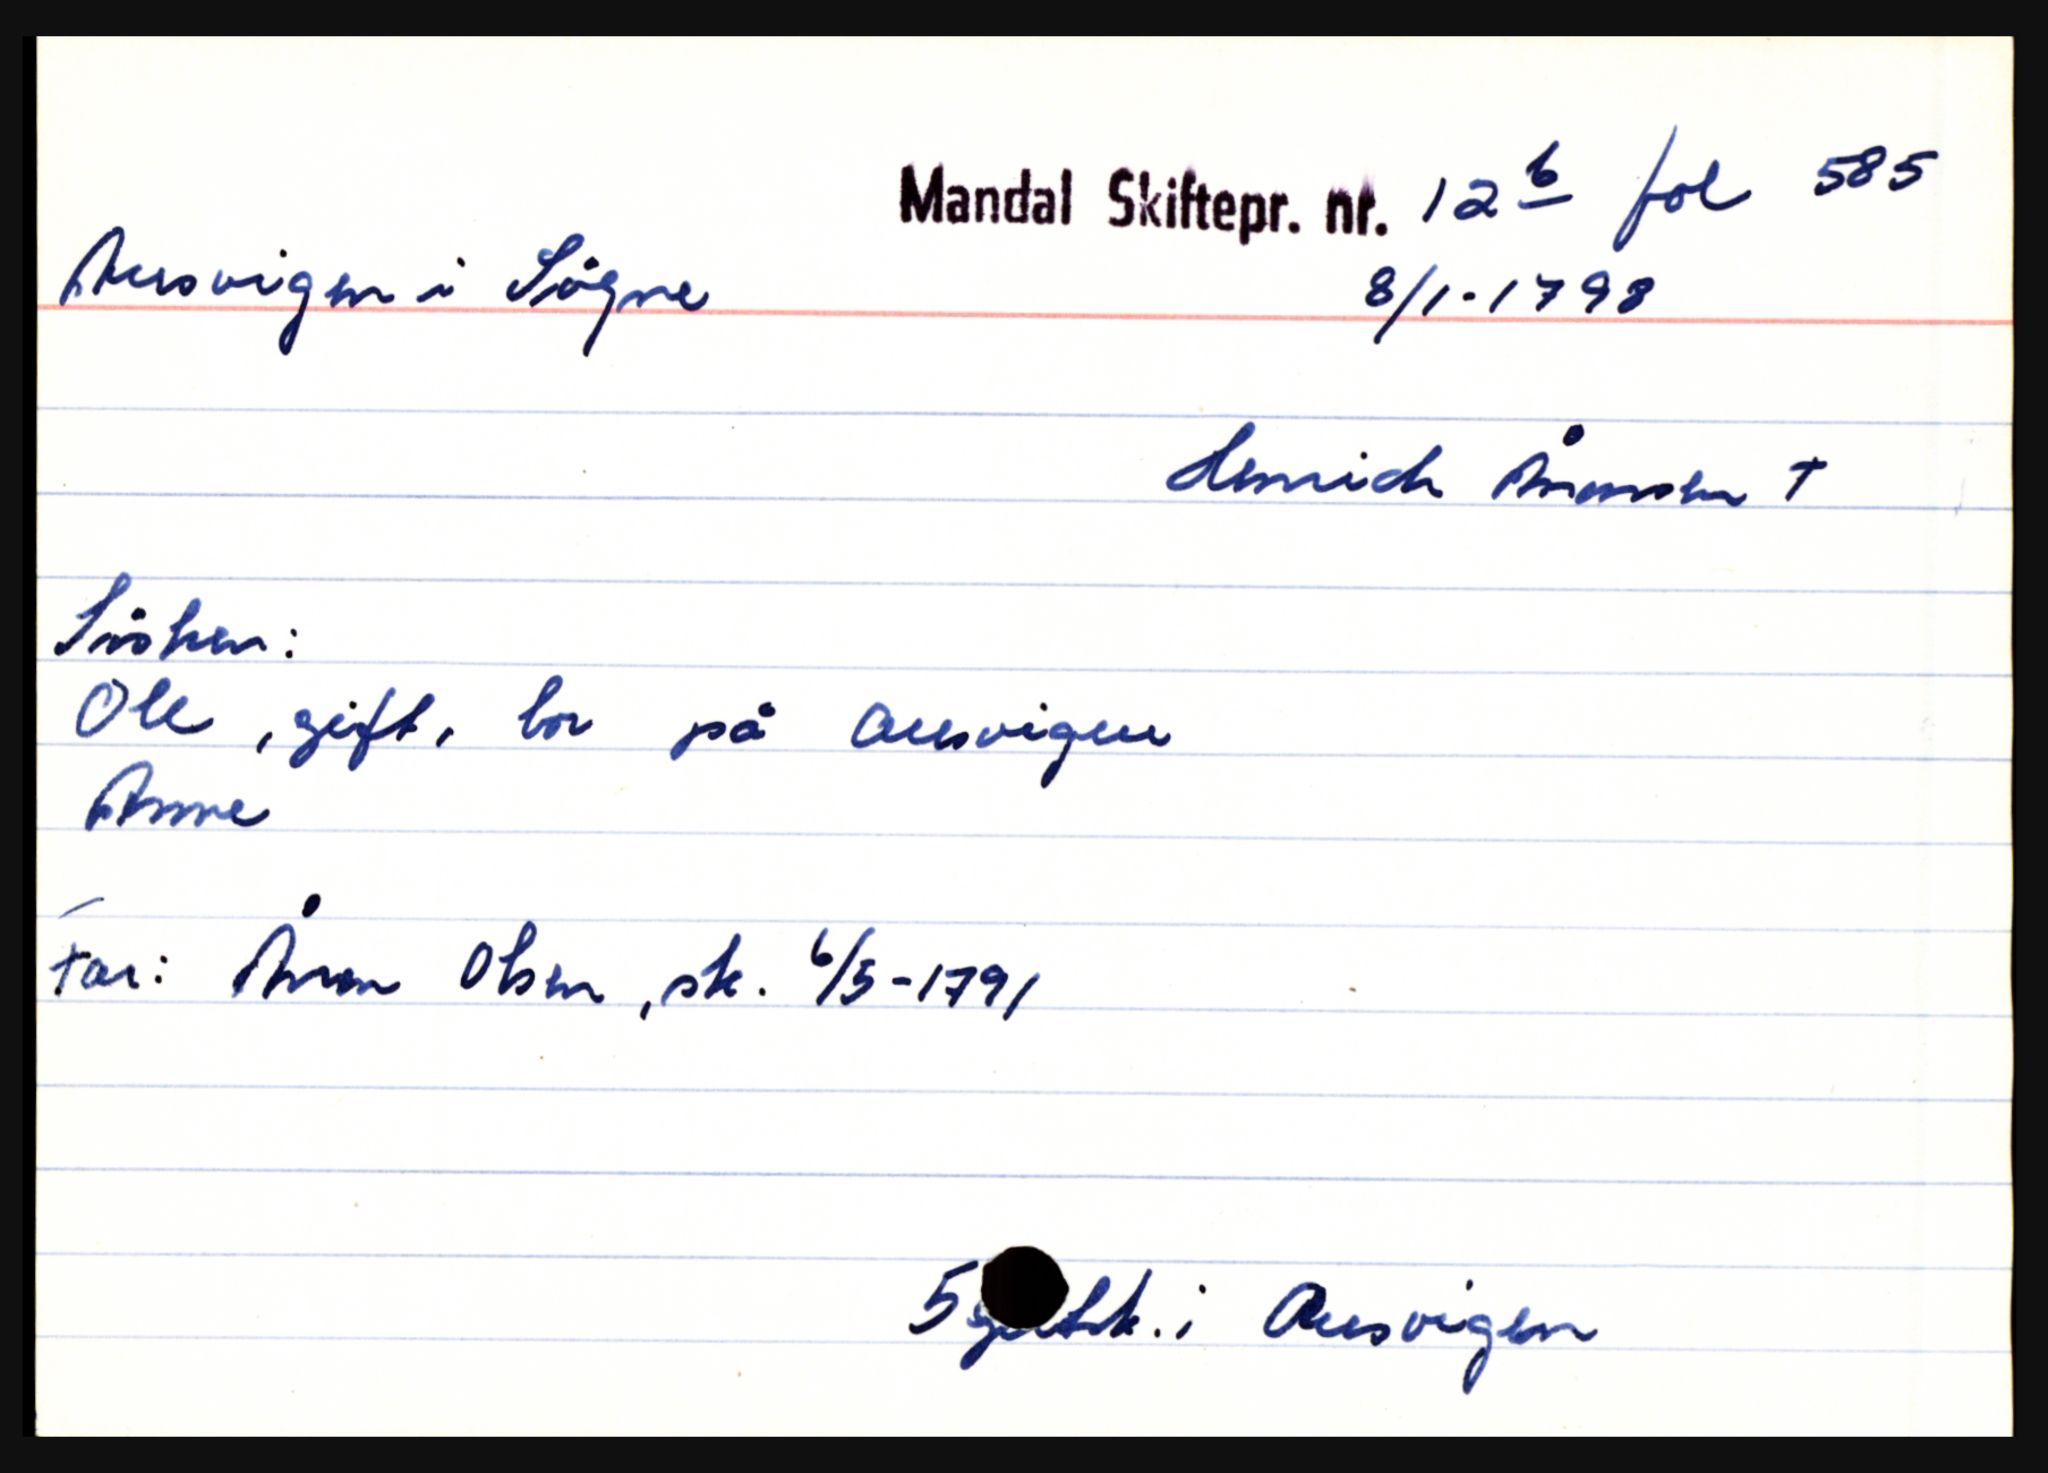 Mandal Skiftepr. nr. 12 b fol 585
Ausvigen i Søgne 8/1-1798
Henrich Ånonsen †
Søsken:
Ole, gift, bor på Ausvigen
Anne
Far: Ånon Olsen, sk. 6/5-1791
5 i Ausvigen